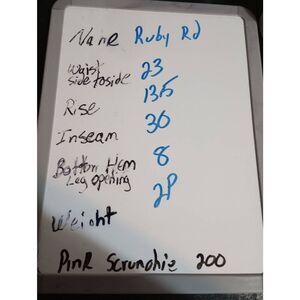 Name Ruby Rd
Waist 23
side to side 13.5
Rise
Inseam 30
Bottom Hem 8
Leg opening
2P
Weight
Pink Scrunchie 200